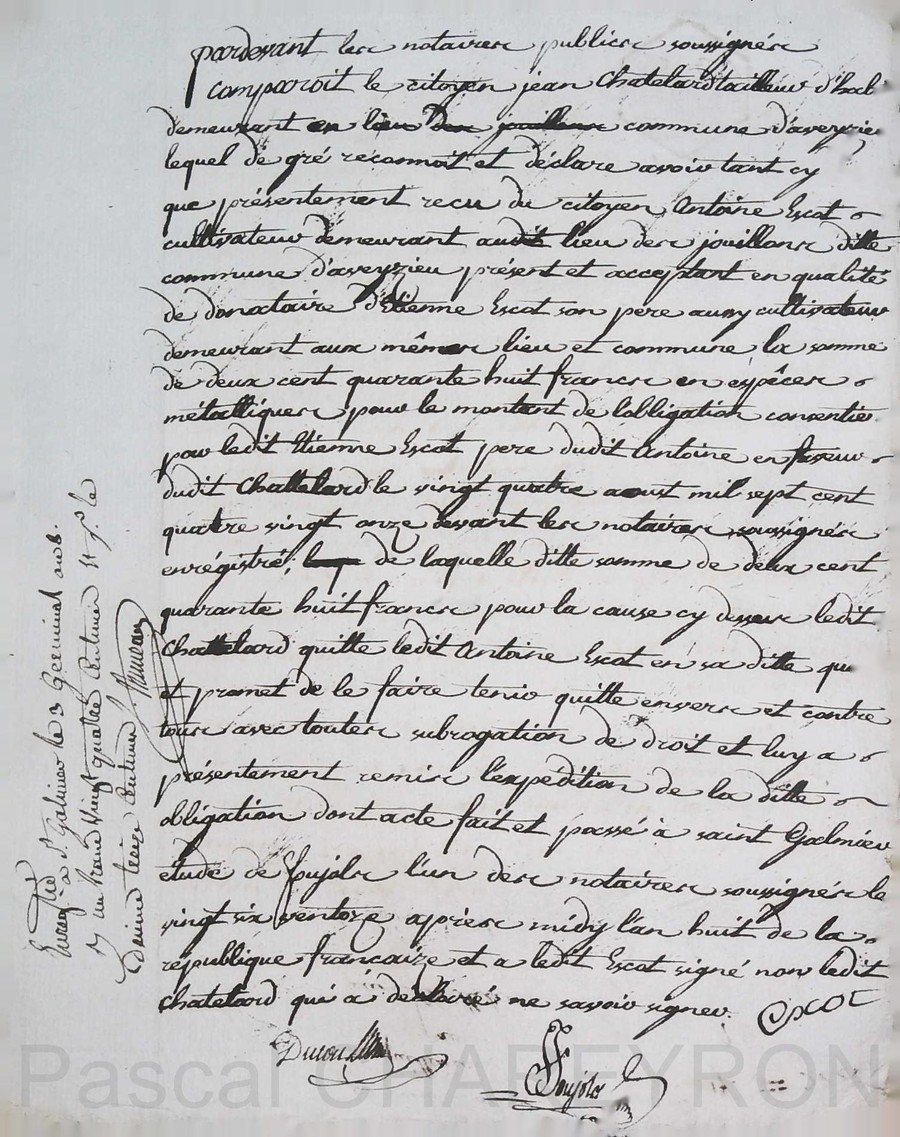 pardevant les notaires publics soussignés
comparoit le citoyen jean Chatelard tailleur d'hab
demeurant en lieu des jouillons commune d'aveyzieu
lequel de gré reconnoit et déclare avoir tant cy
que présentement recu du citoyen Antoine Escot
cultivateur demeurant audit lieu des jouillons ditte
commune d'aveyzieu présent et acceptant en qualité
de donataire d'Etienne Escot son pere aussy cultivateur
demeurant aux mêmes lieu et commune la somme
de deux cent quarante huit francs en espêces
métalliques pour le montant de lobligation consentie
par ledit Etienne Escot pere dudit Antoine en faveur
dudit Chattelard le vingt quatre aoust mil sept cent
quatre vingt onze devant les notaires soussignés
enrégistré, de laquelle ditte somme de deux cent
quarante huit francs pour la cause cy dessus ledit
Chattelard quitte ledit Antoine Escot en sa ditte qu
et promet de le faire tenir quitte envers et contre
tous avec toutes subrogation de droit et luy a
présentement remis l'expédition de la ditte
obligation dont acte fait et passé à saint Galmier
étude de Pujols l'un des notaires soussignés le
vingt six ventoze apries midy l'an huit de la
république francaize et a ledit Escot signé non ledit
Chatelard qui a déclaré ne savoir signer. Escot
Pujols
Enregtré à St Galmier le 3 Germinal an 8.
vingt quatre centimes
centimes